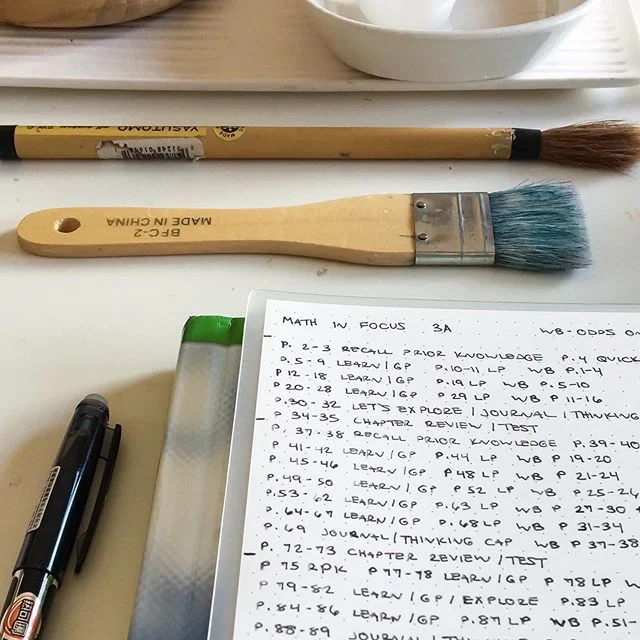 YASUTOMO
BFC-2
MADE IN CHINA
MATH IN FOCUS 3A WB-ODDS
P. 2-3 RECALL PRIOR KNOWLEDGE P.4 QUICK
P.5-9 LEARN/GP P.10-11 LP WB P.1-4
P12-18 LEARN/GP P.19 LP WB P.5-10
P20-28 LEARN/GP P 29 LP WB P 11-16
P.30-32 LET'S EXPLORE/JOURNAL/THINKING
P 34-35 CHAPTER REVIEW/TEST
P. 37-38 RECALL PRIOR KNOWLEDGE P.39-40
P. 41-42 LEARN/GP P.44 LP WB P 19-20
P. 45-46 LEARN/GP P48 LP WB P 21-24
P.49-50 LEARN/GP P 52 LP WB P 25-26
P.53-62 LEARN/GP P.63 LP WB P 27-30
P. 64-67 LEARN/GP P.68 LP WB P 31-34
P. 69 JOURNAL/THINKING CAP WB P 37-38
P. 72-73 CHAPTER REVIEW/TEST
P 75 RPK P77-78 LEARN/GP P 78 LP
P 79-82 LEARN/GP/EXPLORE P.83 LP
P. 84-86 LEARN/GP P.87 LP WB P.51-
P.88-89 JOURNAL/THINKING